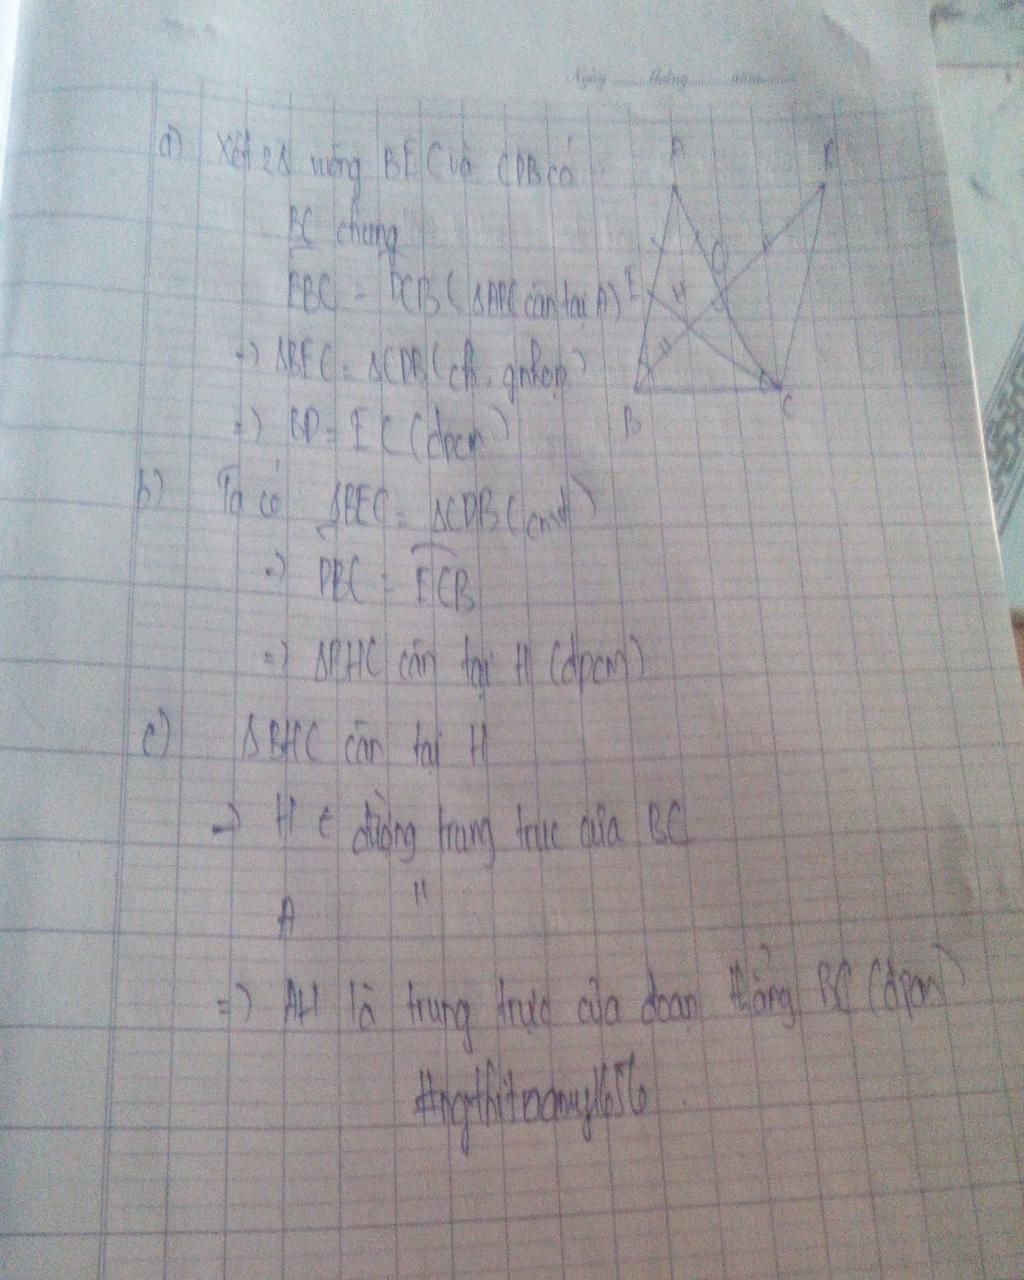 Ngày ........ tháng ........ năm ........
a) Xét 2Δ vuông BEC và CDB có :
BC chung
EBC = DCB (ΔABC cân tại A)
=> ΔBEC = ΔCDB (ch . gnhọn)
=> BD = EC (đpcm)
b) Ta có ΔBEC = ΔCDB (cmt)
=> DBC = ECB
=> ΔBHC cân tại H (đpcm)
c) ΔBHC cân tại H
=> H ∈ đường trung trực của BC
A "
=> AH là trung trực của đoạn thẳng BC (đpcm)
A K
E H
B C